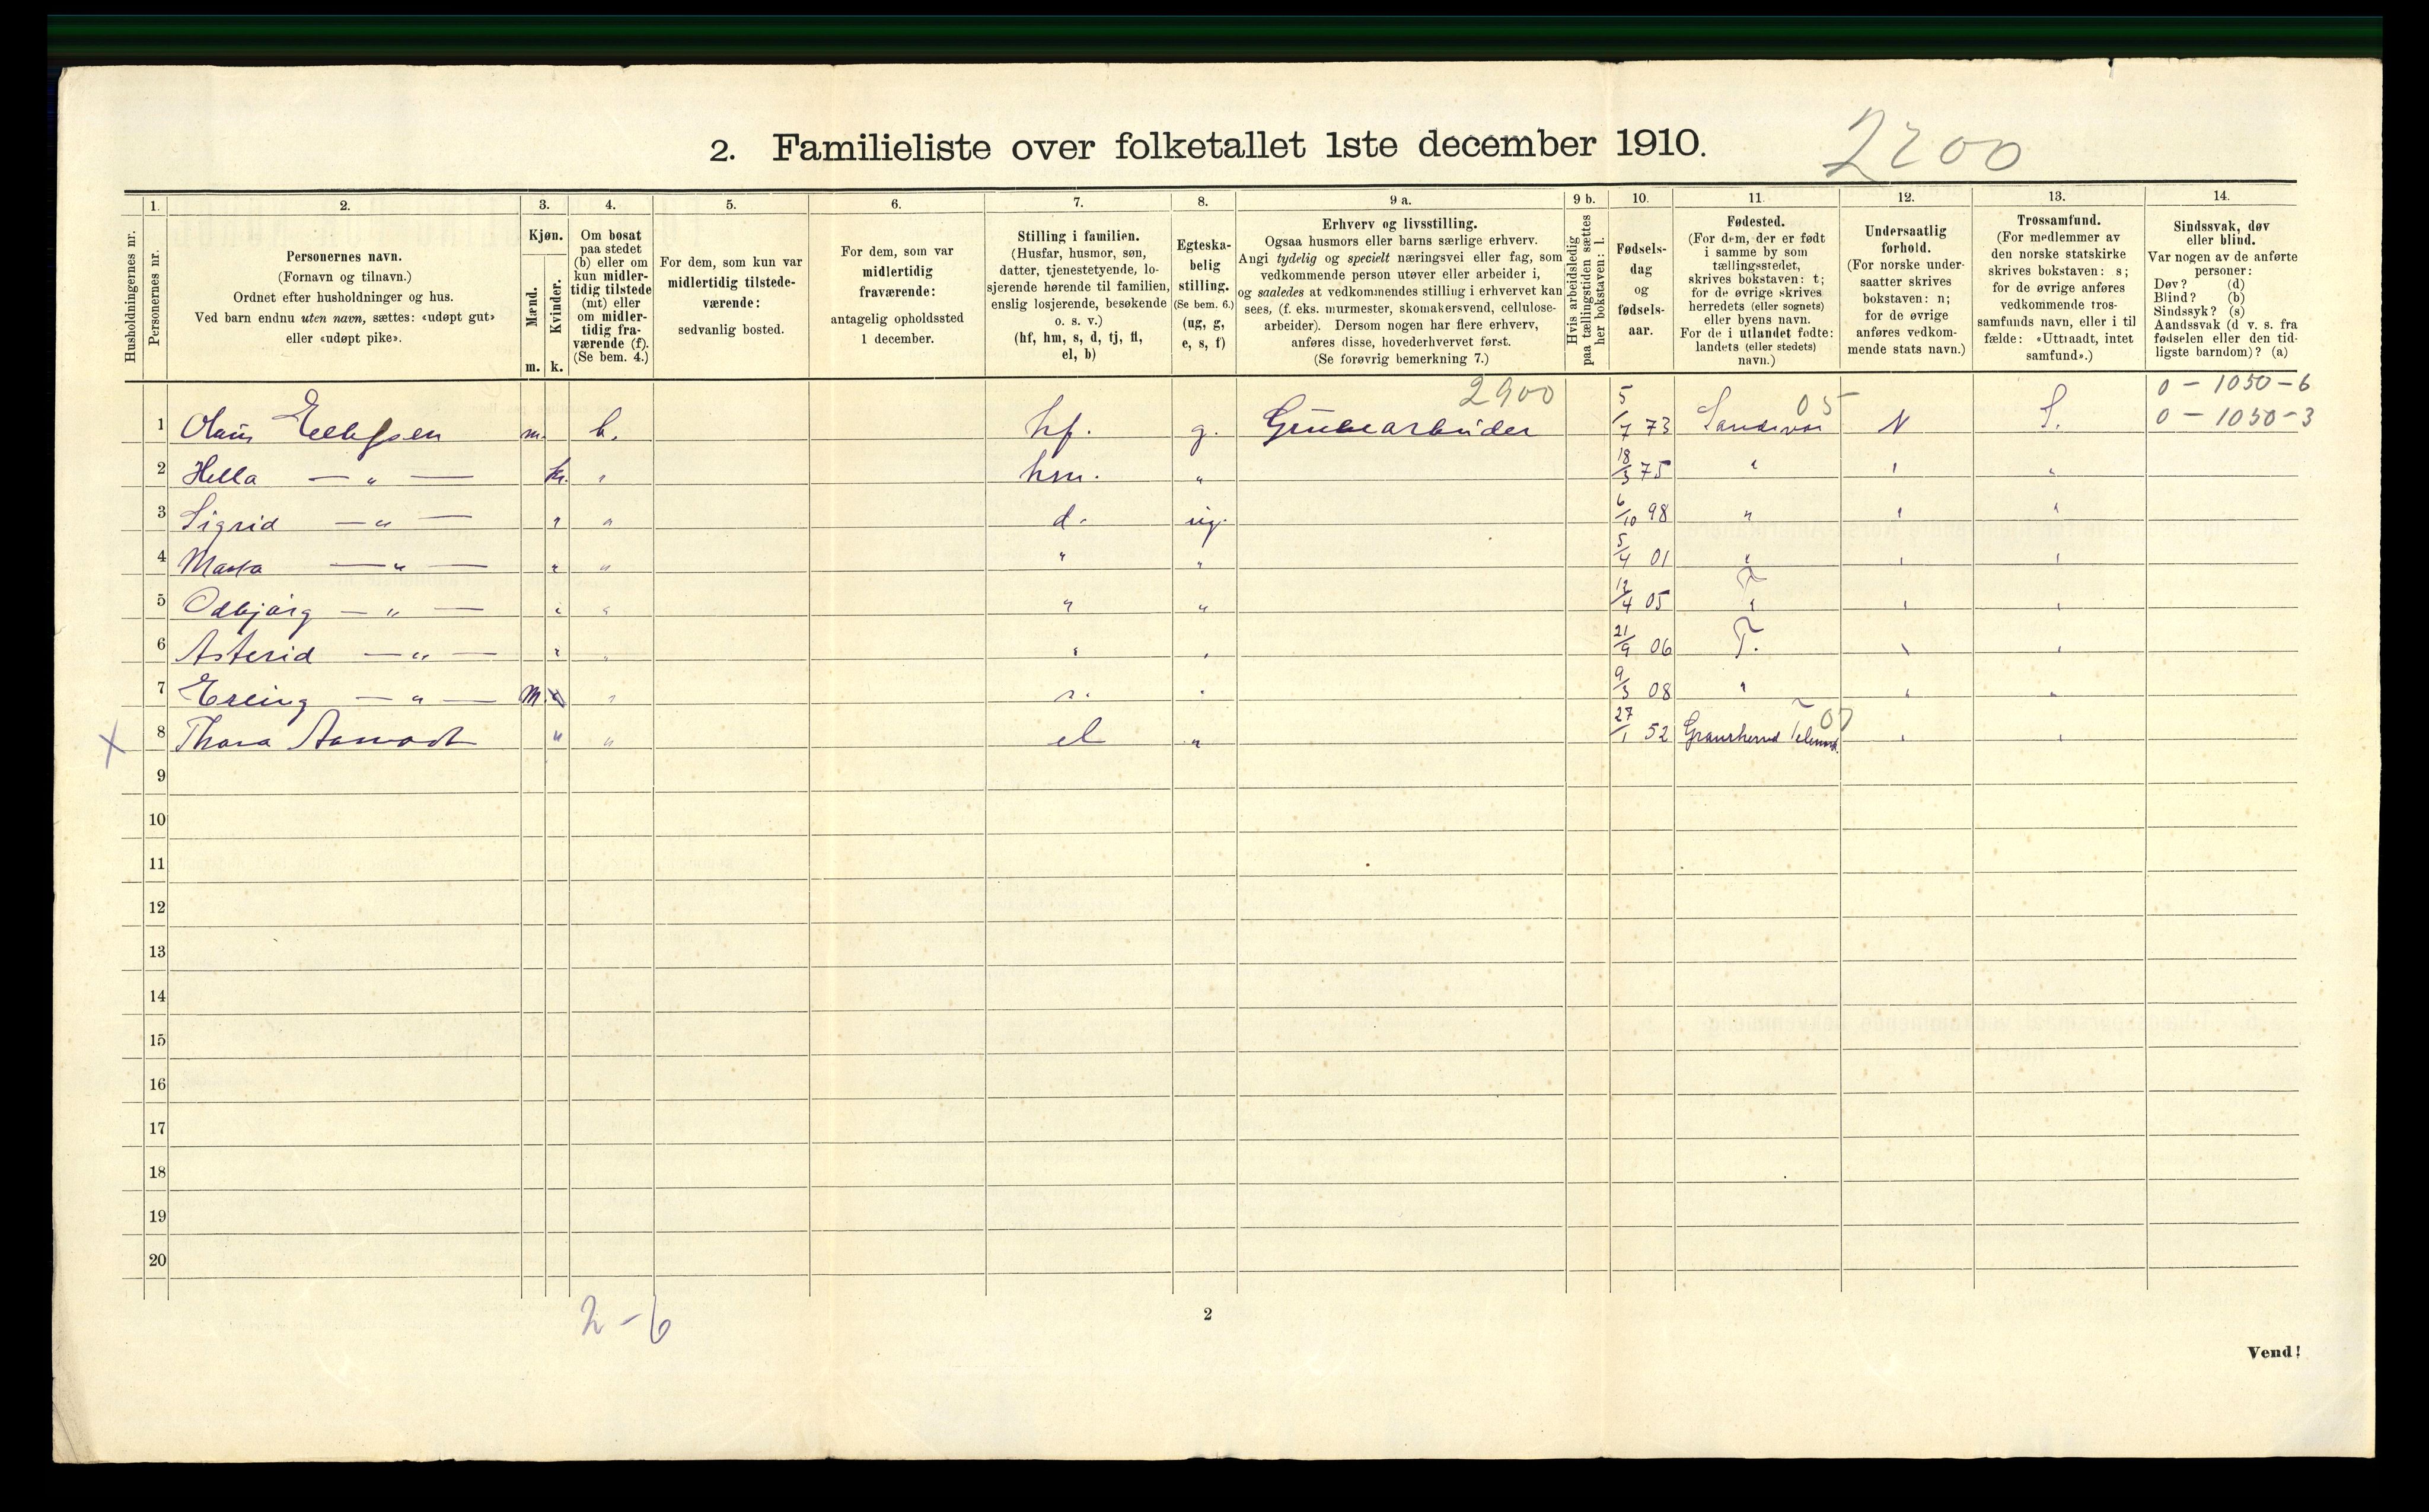 2. Familieliste over folketallet 1ste december 1910.
2200
1. 2. 3. 4. 5. 6. 7. 8. 9 a. 9 b. 10. 11. 12. 13. 14.
Husholdningernes nr.
Personernes nr.
Personernes navn.
(Fornavn og tilnavn.)
Ordnet efter husholdninger og hus.
Ved barn endnu uten navn, sættes: «udøpt gut»
eller «udøpt pike».
Kjøn.
Mænd.
Kvinder.
m. k.
Om bosat
paa stedet
(b) eller om
kun midler-
tidig tilstede
(mt) eller
om midler-
tidig fra-
værende (f).
(Se bem. 4.)
For dem, som kun var
midlertidig tilstede-
værende:
sedvanlig bosted.
For dem, som var
midlertidig
fraværende:
antagelig opholdssted
1 december.
Stilling i familien.
(Husfar, husmor, søn,
datter, tjenestetyende, lo-
sjerende hørende til familien,
enslig losjerende, besøkende
o. s. v.)
(hf, hm, s, d, tj, fl,
el, b)
Egteska-
belig
stilling.
(Se bem. 6.)
(ug, g,
e, s, f)
Erhverv og livsstilling.
Ogsaa husmors eller barns særlige erhverv.
Angi tydelig og specielt næringsvei eller fag, som
vedkommende person utøver eller arbeider i,
og saaledes at vedkommendes stilling i erhvervet kan
sees, (f. eks. murmester, skomakersvend, cellulose-
arbeider). Dersom nogen har flere erhverv,
anføres disse, hovederhvervet først.
(Se forøvrig bemerkning 7.)
Hvis arbeidsledig
paa tællingstiden sættes
her bokstaven: l.
Fødsels-
dag
og
fødsels-
aar.
Fødested.
(For dem, der er født
i samme by som
tællingsstedet,
skrives bokstaven: t;
for de øvrige skrives
herredets (eller sognets)
eller byens navn.
For de i utlandet fødte:
landets (eller stedets)
navn.)
Undersaatlig
forhold.
(For norske under-
saatter skrives
bokstaven: n;
for de øvrige
anføres vedkom-
mende stats navn.)
Trossamfund.
(For medlemmer av
den norske statskirke
skrives bokstaven: s;
for de øvrige anføres
vedkommende tros-
samfunds navn, eller i til
fælde: «Uttraadt, intet
samfund».)
Sindssvak, døv
eller blind.
Var nogen av de anførte
personer:
Døv? (d)
Blind? (b)
Sindssyk? (s)
Aandssvak (d v. s. fra
fødselen eller den tid-
ligste barndom)? (a)
2900 05 0 - 1050 - 6
1 Olaus m. b. hf. g. Grubearbeider 5/7 73 Sandsvær N S. 0 - 1050 - 3
2 Hella — " — k. " hsm. " 18/3 75 " " "
3 Sigrid — " — " " d. ug. 6/10 98 " " "
4 Marta — " — " " " " 5/4 01 " " "
5 Odbjørg — " — " " " " 12/4 05 T " " "
6 Asterid — " — " " " " 21/9 06 T. " "
7 Erling — " — M. " s. " 9/3 08 " " "
X 8 Thora " " el " 27/1 52 Gransherred Telemk. 07 " "
9
10
11
12
13
14
15
16
17
18
19
20
2 - 6
2
Vend!